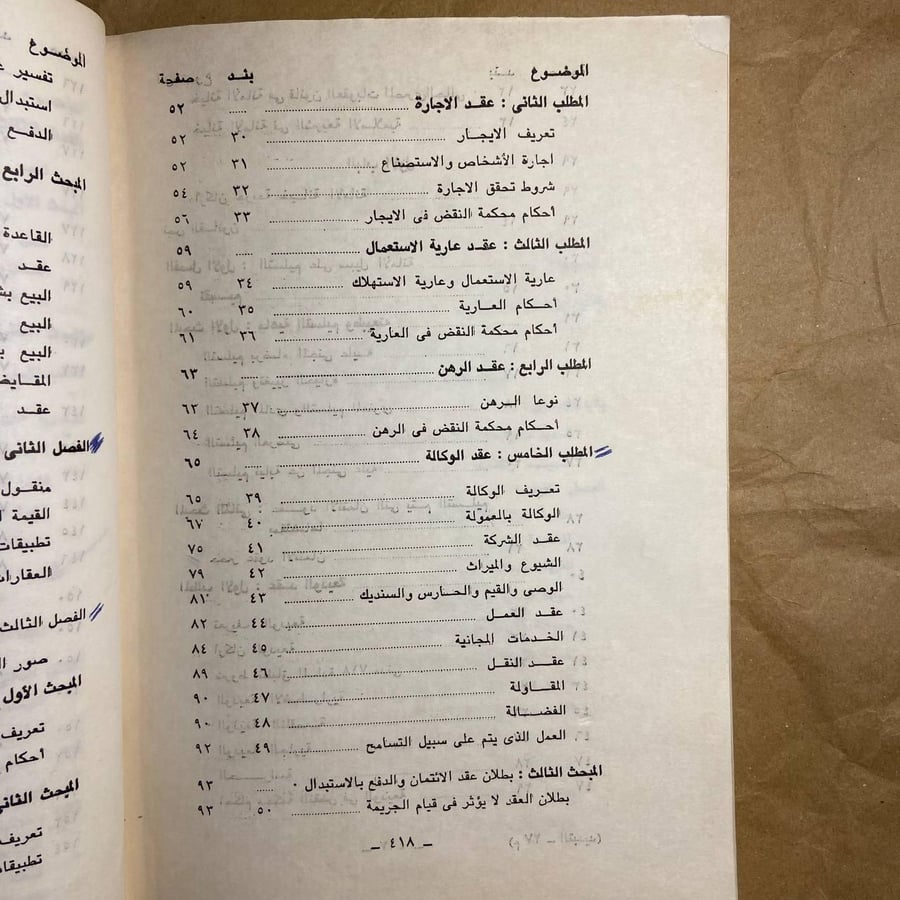 الموضوع بند صفحة
المطلب الثانى : عقد الاجارة ..... ٥٢
تعريف الايجار ..... ٣٠ ٥٢
اجارة الأشخاص والاستصناع ..... ٣١ ٥٢
شروط تحقق الاجارة ..... ٣٢ ٥٤
أحكام محكمة النقض فى الايجار ..... ٣٣ ٥٦
المطلب الثالث : عقد عارية الاستعمال ..... ٥٩
عارية الاستعمال وعارية الاستهلاك ..... ٣٤ ٥٩
أحكام العارية ..... ٣٥ ٦٠
أحكام محكمة النقض فى العارية ..... ٣٦ ٦١
المطلب الرابع : عقد الرهن ..... ٦٣
نوعا الرهن ..... ٣٧ ٦٣
أحكام محكمة النقض فى الرهن ..... ٣٨ ٦٤
المطلب الخامس : عقد الوكالة ..... ٦٥
تعريف الوكالة ..... ٣٩ ٦٥
الوكالة بالعمولة ..... ٤٠ ٦٧
عقد الشركة ..... ٤١ ٧٥
الشيوع والميراث ..... ٤٢ ٧٩
الوصى والقيم والحارس والسنديك ..... ٤٣ ٨١
عقد العمل ..... ٤٤ ٨٢
الخدمات المجانية ..... ٤٥ ٨٤
عقد النقل ..... ٤٦ ٨٩
المقاولة ..... ٤٧ ٩٠
الفضالة ..... ٤٨ ٩٠
العمل الذى يتم على سبيل التسامح ..... ٤٩ ٩٢
المبحث الثالث : بطلان عقد الائتمان والدفع بالاستبدال . ٩٣
بطلان العقد لا يؤثر فى قيام الجريمة ..... ٥٠ ٩٣
ـ ٤١٨ ـ
الموضوع
تفسير
استبدال
الدفع
المبحث الرابع
القاعدة
عقد
البيع
البيع
البيع
المقايض
عقد
الفصل الثانى
منقول
القيمة
تطبيقات
العقارات
الفصل الثالث
صور
المبحث الأول
تعريف
أحكام
المبحث الثانى
تعريف
تطبيقات